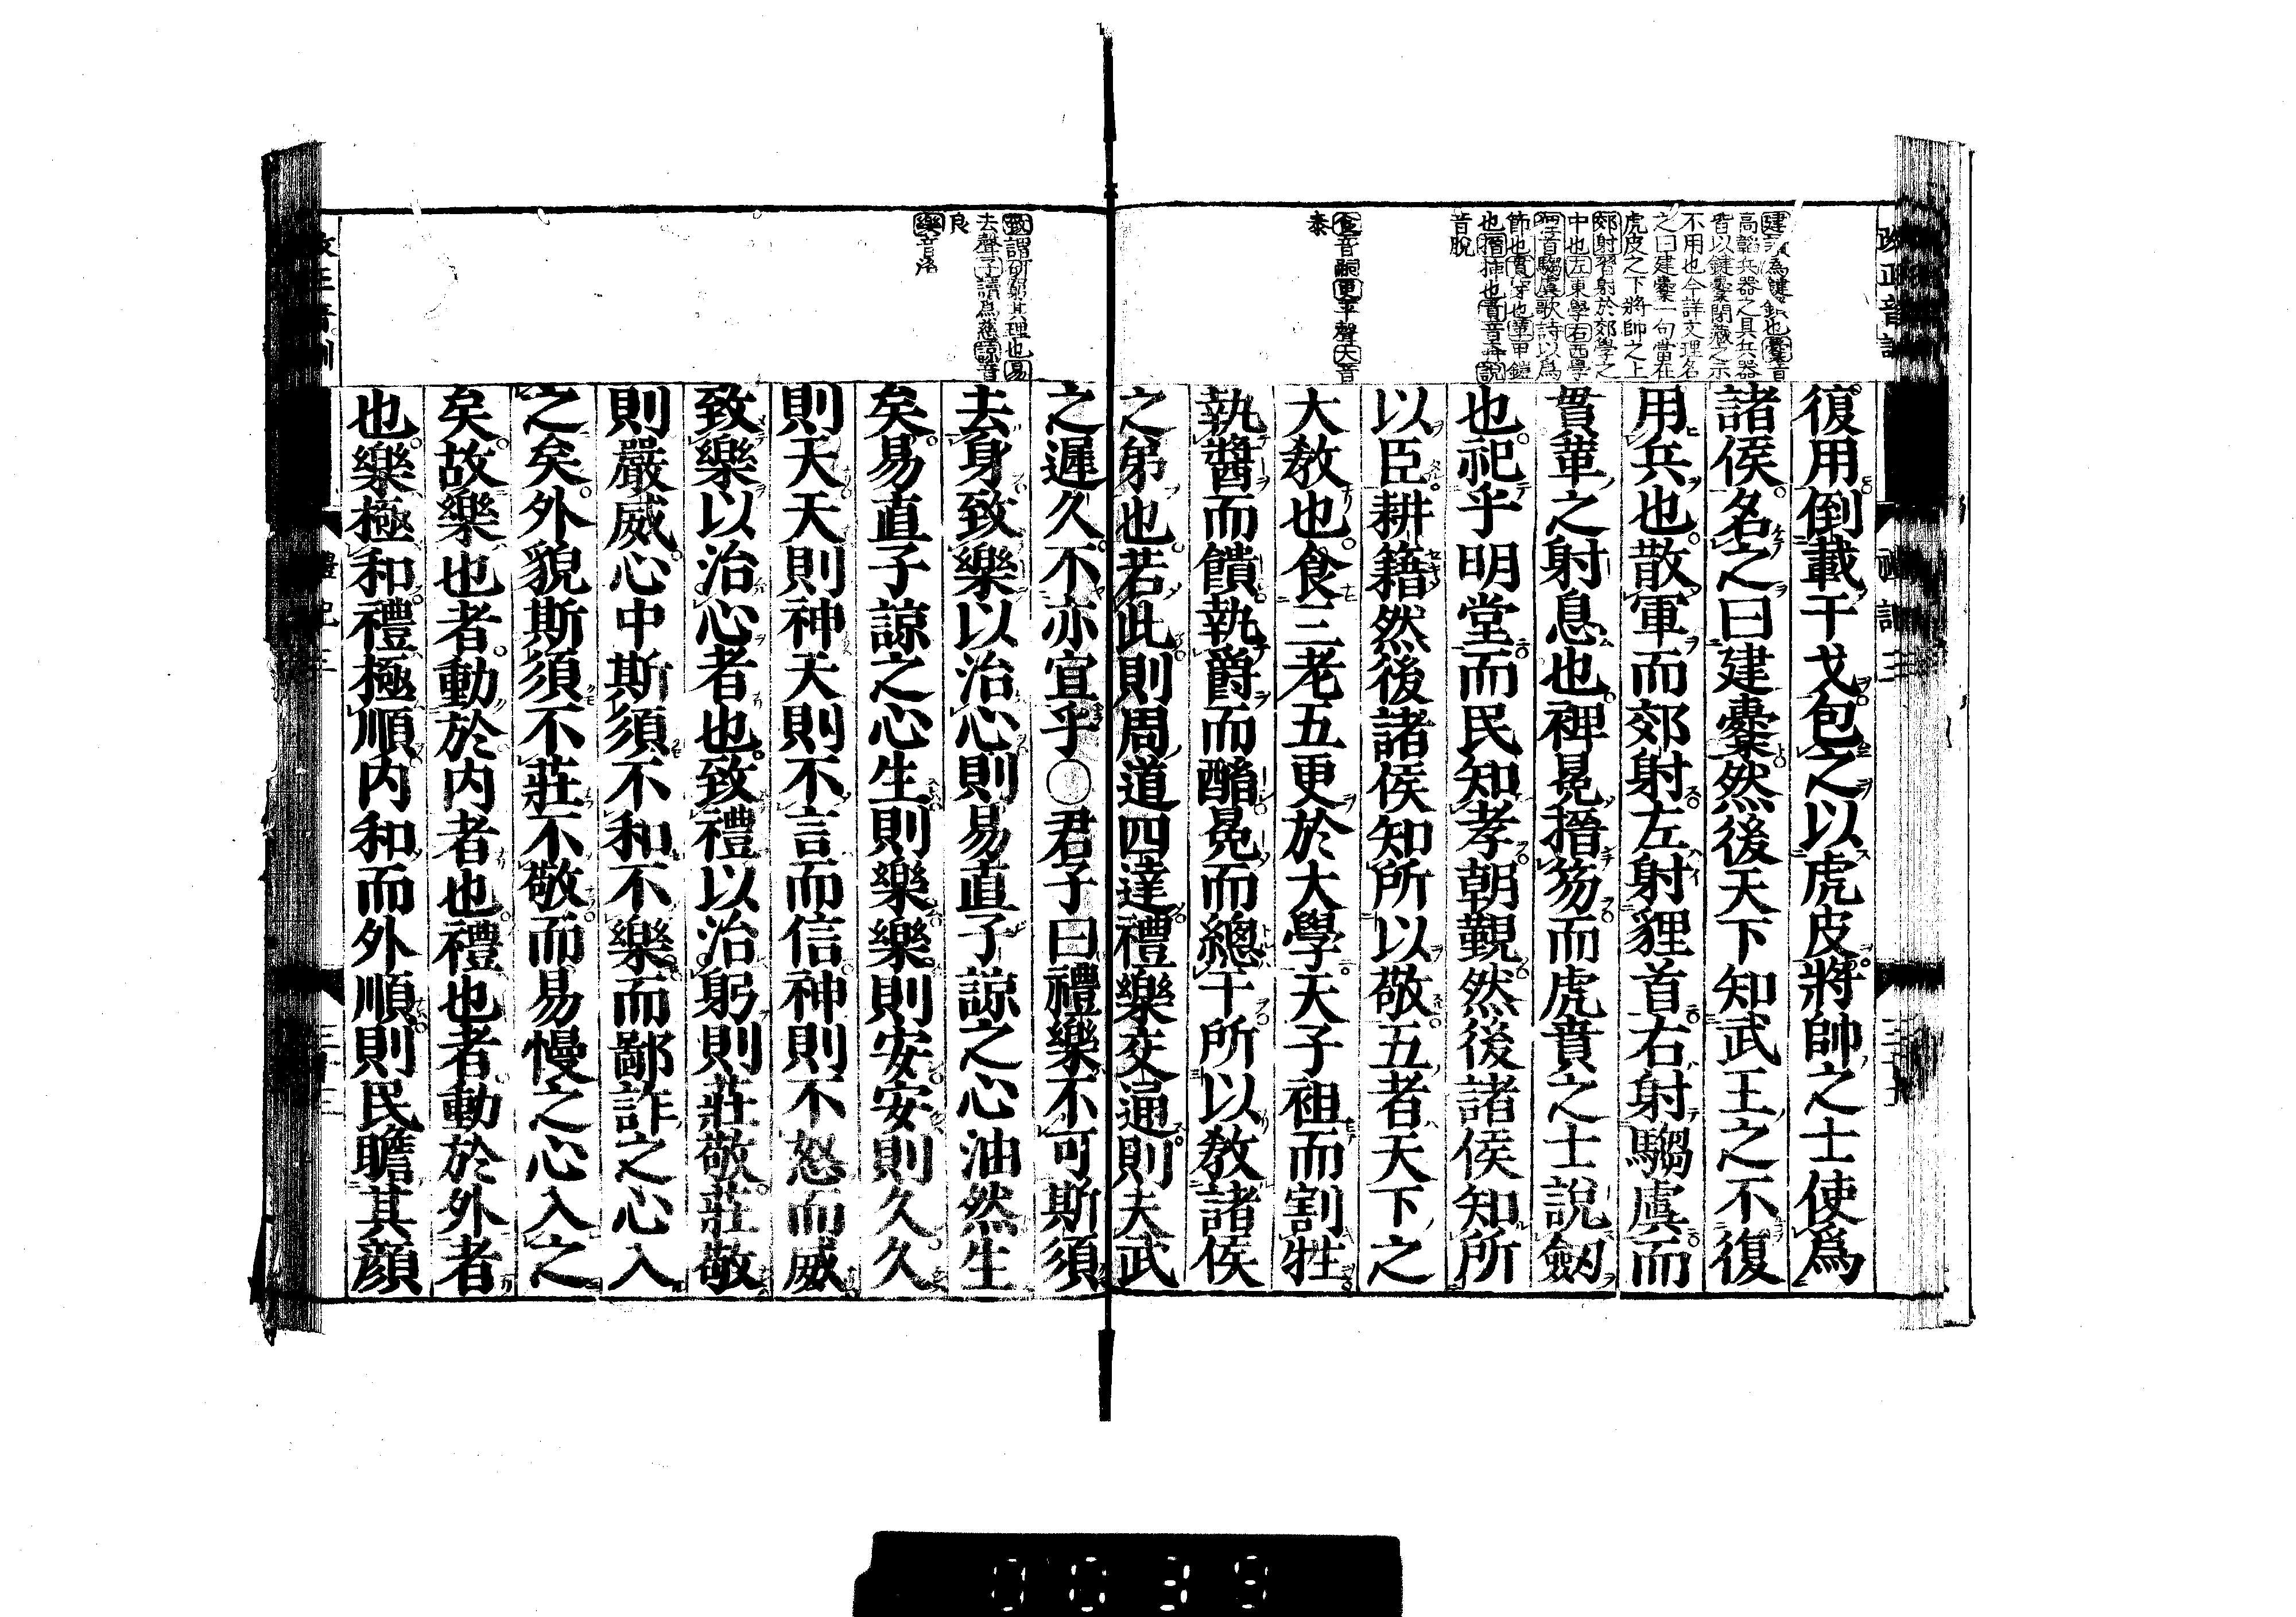 復用倒載干戈包之以虎皮將帥之士使爲
諸侯名之曰建櫜然後天下知武王之不復
用兵也散軍而郊射左射貍首右射騶虞而
貫革之射息也裨冕搢笏而虎賁之士說劒
也祀乎明堂而民知孝朝覲然後諸侯知所
以臣耕籍然後諸侯知所以敬五者天下之
大敎也食三老五更於大學天子袒而割牲
執醬而饋執爵而酳冕而總干所以敎諸侯
之弟也若此則周道四達禮樂交通則夫武
之遲久不亦宜乎○君子曰禮樂不可斯須
去身致樂以治心則易直子諒之心油然生
矣易直子諒之心生則樂樂則安安則久久
則天天則神天則不言而信神則不怒而威
致樂以治心者也致禮以治躬則莊敬莊敬
則嚴威心中斯須不和不樂而鄙詐之心入
之矣外貌斯須不莊不敬而易慢之心入之
矣故樂也者動於内者也禮也者動於外者
也樂極和禮極順内和而外順則民瞻其顔
高韜兵器之具兵器
皆以鍵櫜閉藏之示
不用也今詳文理名
之曰建櫜一句當在
虎皮之下將帥之上
郊射習射於郊學之
中也左東學右西學
貍首騶虞歌詩以爲
節也貫穿也革甲鎧
也搢插也賁音奔說
音脫
食音嗣更平聲大音
泰
致謂研窮其理也易
去聲子讀爲慈諒音
良
樂音洛
0039